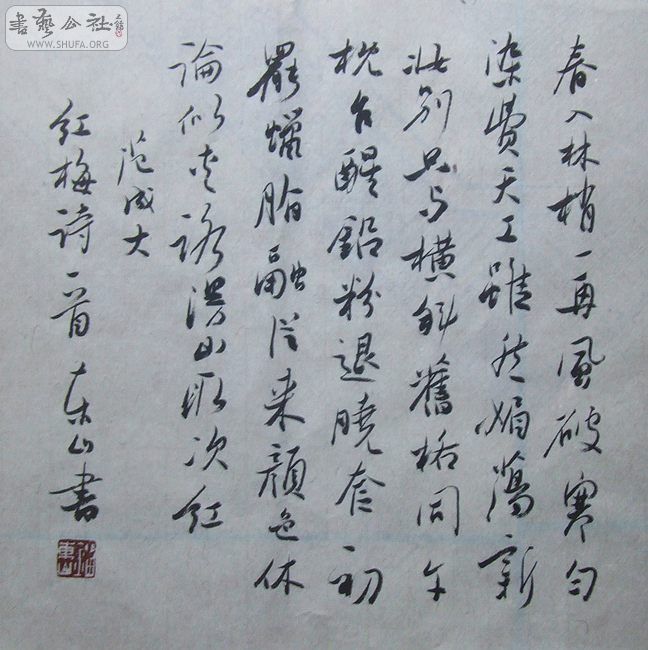 書藝公社
WWW.SHUFA.ORG
春入林梢一再風破寒勻
染費天工雖然媚蕩新
妝別只与橫斜舊格同午
枕乍醒鉛粉退曉奩初
罷蠟脂融從來顏色休
論似夾路漫山取次红
范成大
红梅詩一首 東山書